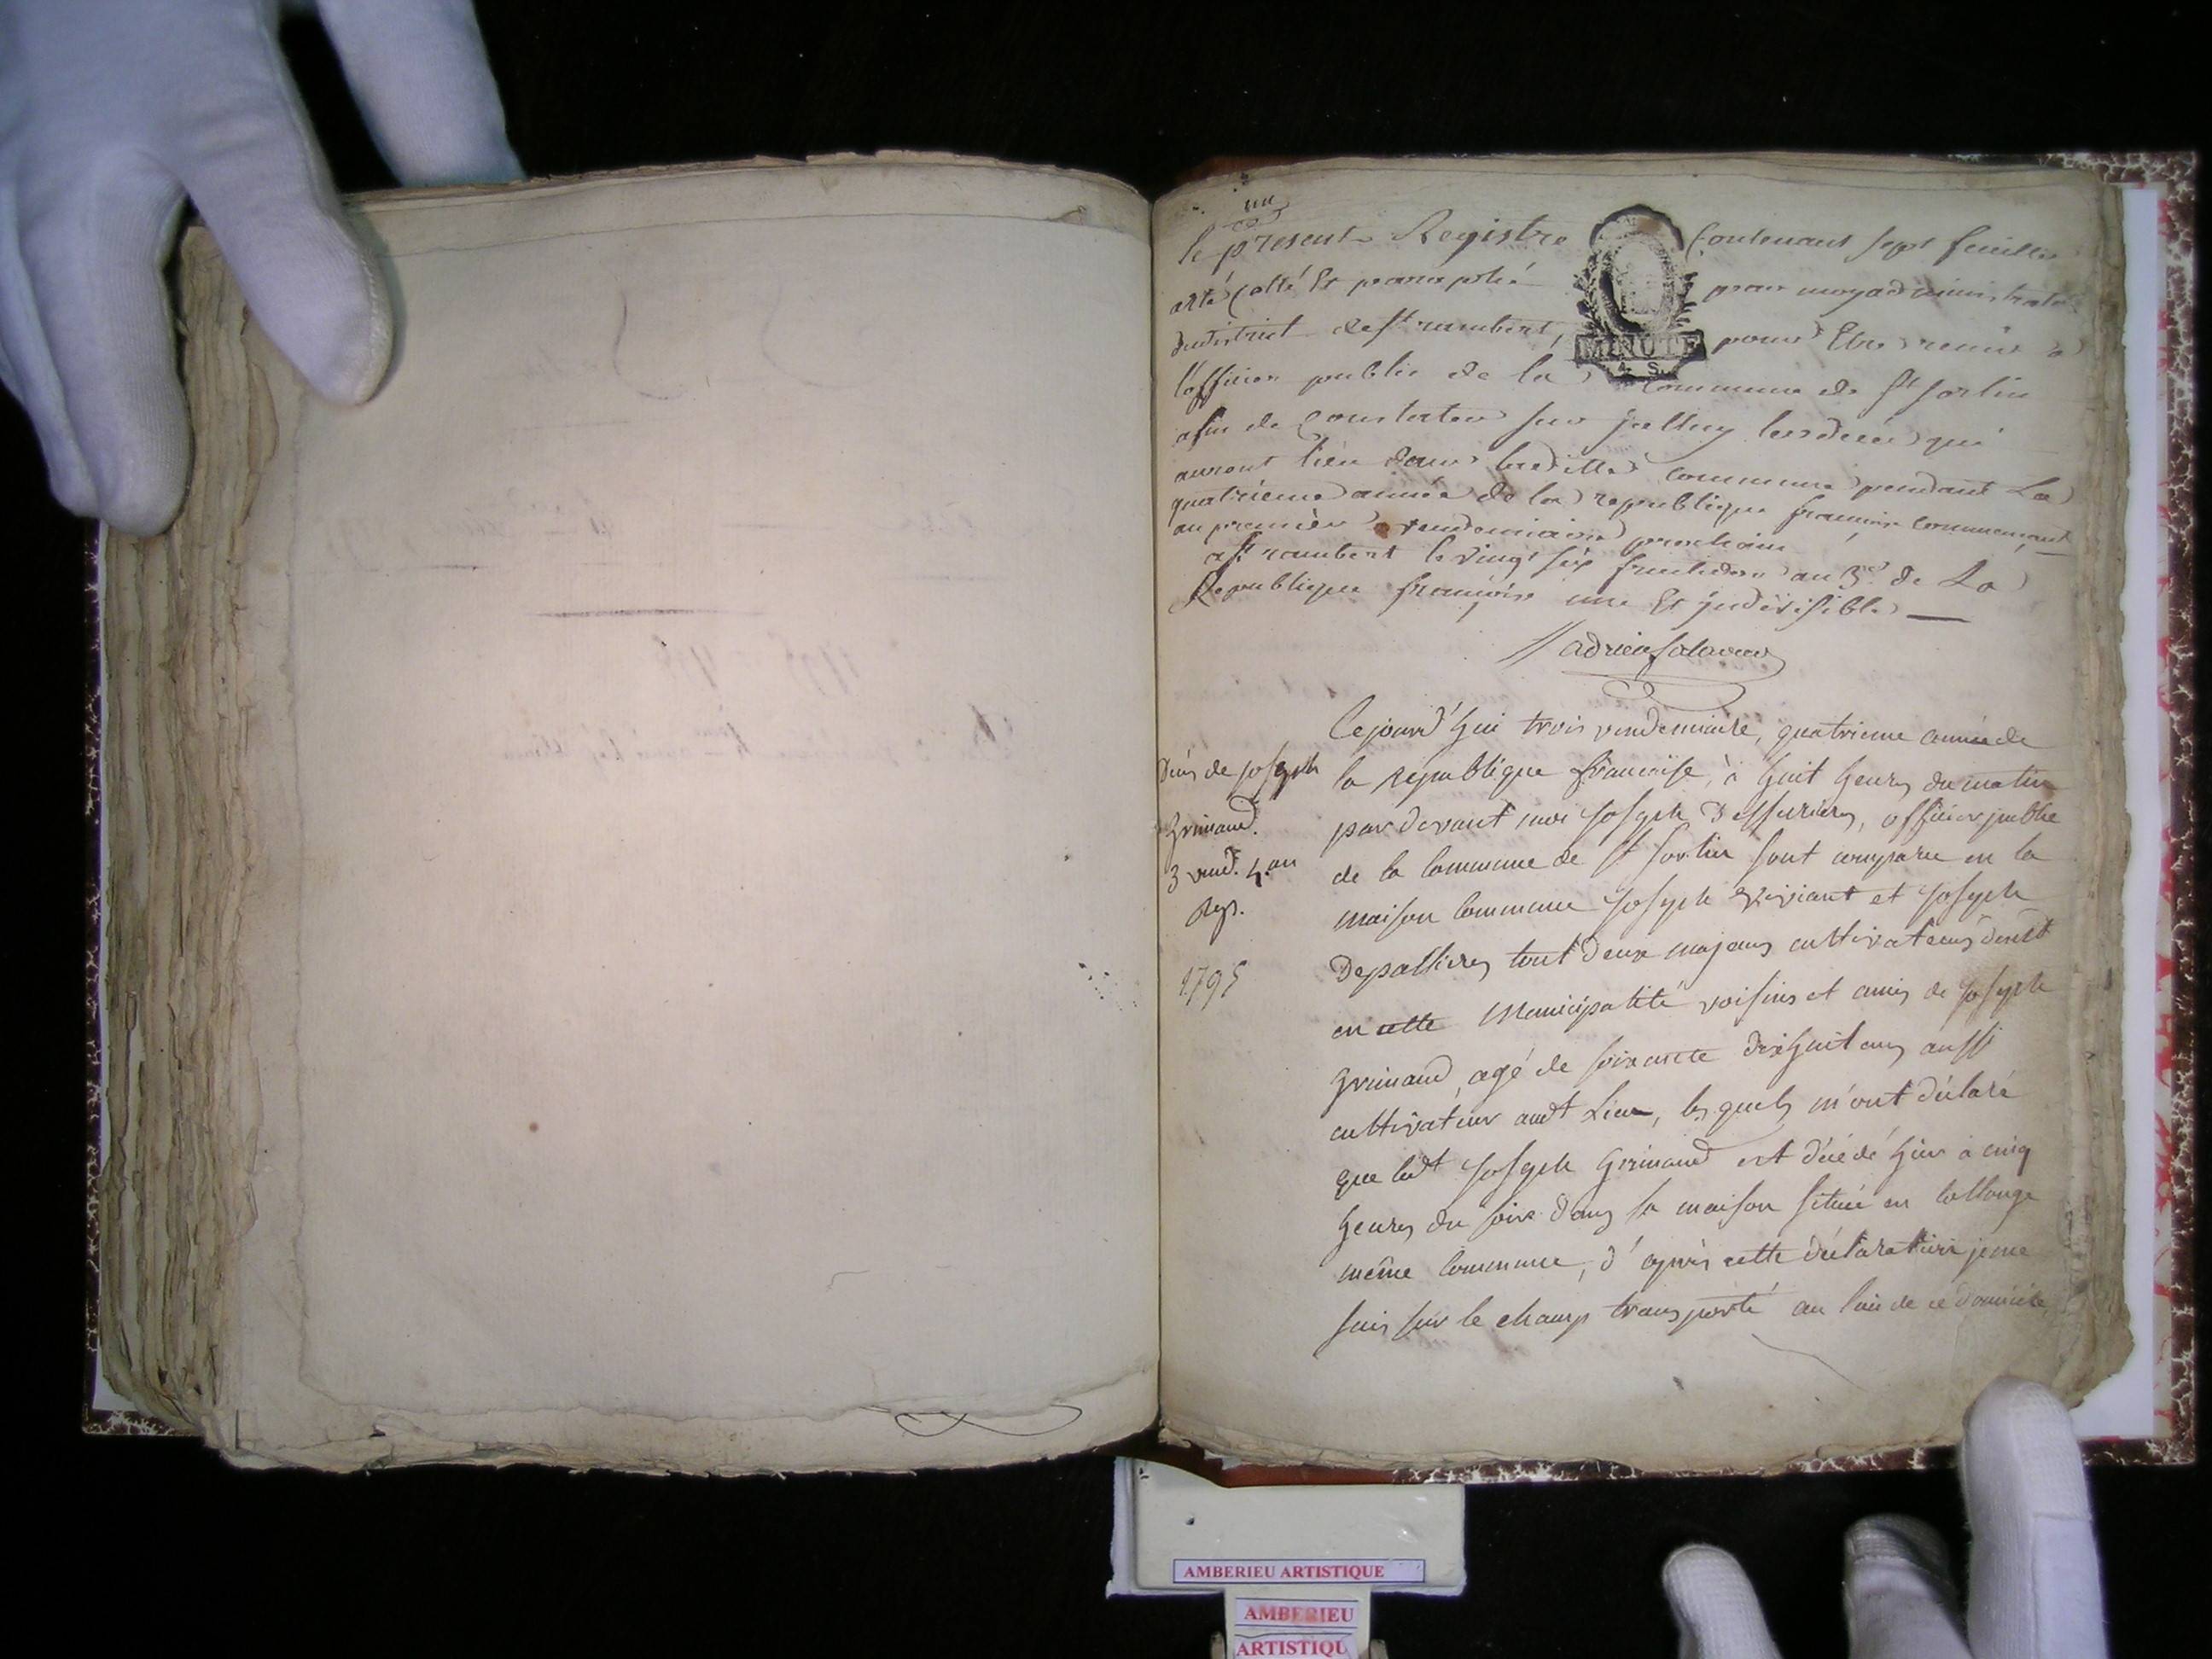 un
le présent Registre Contenant sept feuilles
été cotté Et paraphé par moy administrateur
du district de st rambert, pour Etre remis a
MINUTE
4. S.
l'officier public de la Commune de st Sorlin
afin de Constater sur jcelluy les décès qui
auront lieu dans laditte Commune pendant La
quatrieme année de la republique françoise Commençant
au premier vendemiaire prochain
a st rambert le vingt six fructidor an 3e. de La
Republique françoise une Et jndivisible
adrien
Cejourd'hui trois vendemiaire, quatrieme année de
la republique francaise, à huit heures du matin
par devant moi Joseph officier public
de la Commune de st Sorlin sont comparu en la
maison Commune Joseph et Joseph
Depallieres tout deux majeurs cultivateurs
en cette Municipalité voisins et amis de Joseph
Grimaud, agé de soixante dixhuit ans aussi
cultivateur audt Lieu, lesquels m'ont déclaré
que ledt Joseph Grimaud est décédé hier à cinq
heures du soir dans sa maison située en Collonge
même Commune, d'après cette déclaration je me
suis sur le champ transporté au lieu de ce domicile
Décès de Joseph
Grimaud.
3 vend. 4. an
Rep.
1795
AMBERIEU ARTISTIQUE
AMBERIEU
ARTISTIQU